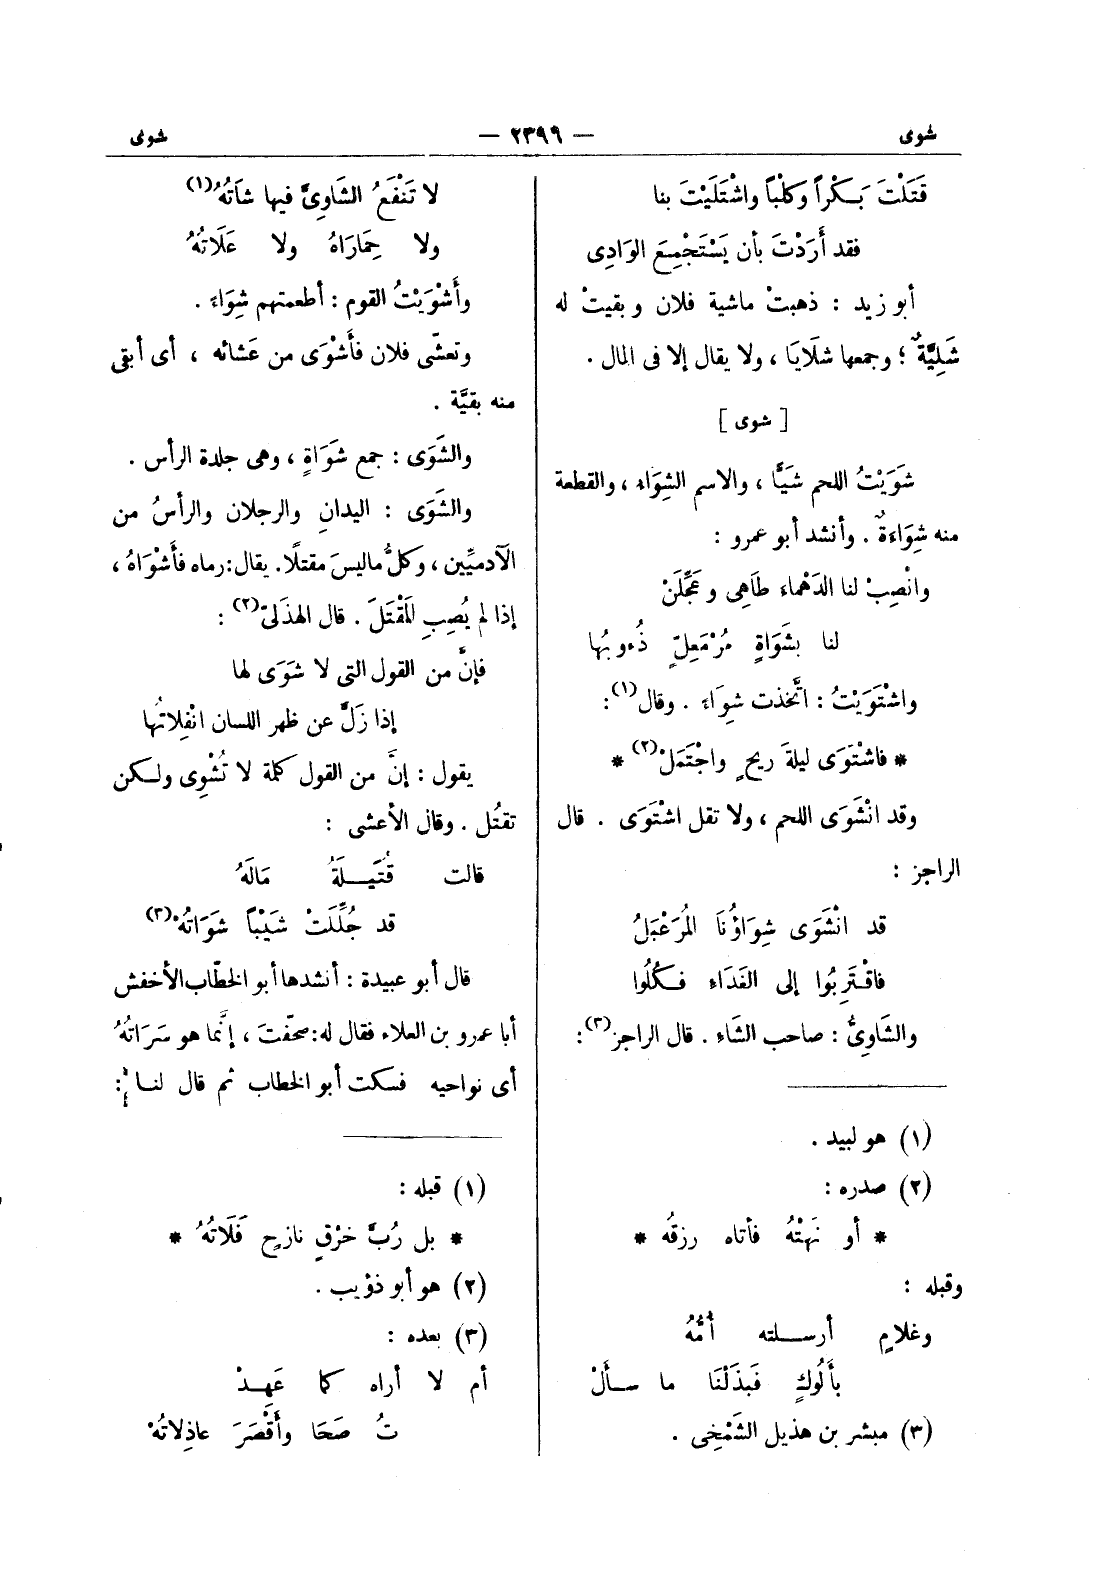 شوى
— ٢٣٩٩ —
شوى
قَتَلْتَ بَكْراً وكَلْباً واشْتَلَيْتَ بنا
فقد أَرَدْتَ بأن يَسْتَجْمِعَ الوَادِى
أبو زيد : ذهبتْ ماشية فلان وبقيتْ له
شَلِيَّةٌ ؛ وجمعها شلَايَا ، ولا يقال إلا فى المال .
[ شوى ]
شَوَيْتُ اللحم شَيًّا ، والاسم الشِوَاء ، والقطعة
منه شِوَاءَةٌ . وأنشد أبو عمرو :
وانْصِبْ لنا الدَهْماء طَاهِى وعَجِّلَنْ
لنا بشَوَاةٍ مُرْمَعِلٍّ ذُءوبُها
واشْتَوَيْتُ : اتَّخذت شِوَاءً . وقال (١) :
* فاشْتَوَى ليلةَ ريحٍ واجْتَمَلْ (٢) *
وقد انْشَوَى اللحم ، ولا تقل اشْتَوَى . قال
الراجز :
قد انْشَوَى شِوَاؤُنَا المُرَعْبَلُ
فاقْتَرِبُوا إلى الغَدَاءِ فَكُلُوا
والشَاوِىُّ : صاحب الشَاءِ . قال الراجز (٣) :
(١) هو لبيد .
(٢) صدره :
* أو نَهَتْهُ فأتاه رزقُه *
وقبله :
وغلامٍ أرسلته أمُّهُ
بأَلُوكٍ فَبَذَلْنَا ما سأَلْ
(٣) مبشر بن هذيل الشَمْخِى .
لا تَنْفَعُ الشَاوِىَّ فيها شَاتُهُ (١)
ولا حِمَارَاهُ ولا عَلَاتُهُ
وأَشْوَيْتُ القوم : أطعمتهم شِوَاءً .
وتعشّى فلان فأَشْوَى من عَشائه ، أى أبقى
منه بقيَّة .
والشَوَى : جمع شَوَاةٍ ، وهى جلدة الرأس .
والشَوَى : اليدانِ والرجلان والرأسُ من
الآدميِّين ، وكلُّ ماليسَ مقتلًا. يقال: رماه فأَشْوَاهُ ،
إذا لم يُصِبِ المَقْتَلَ . قال الهذَلىّ (٢) :
فإنَّ من القول التى لا شَوَى لها
إذا زَلَّ عن ظهر اللسان انْفِلاتُها
يقول : إنَّ من القول كلمة لا تُشْوِى ولكن
تقتُل . وقال الأعشى :
قالت قُتَيْلَةُ مَالَهُ
قد جُلِّلَتْ شَيْباً شَوَاتُهْ (٣)
قال أبو عبيدة : أنشدها أبو الخطّاب الأخفش
أبا عمرو بن العلاء فقال له: صحّفتَ ، إنَّما هو سَرَاتُهُ
أى نواحيه فسكت أبو الخطاب ثم قال لنا :
(١) قبله :
* بل رُبَّ خرْقٍ نازحٍ فَلَاتُهُ *
(٢) هو أبو ذؤيب .
(٣) بعده :
أم لا أراه كما عَهِدْ
تُ صَحَا وأَقْصَرَ عاذِلاتُهْ